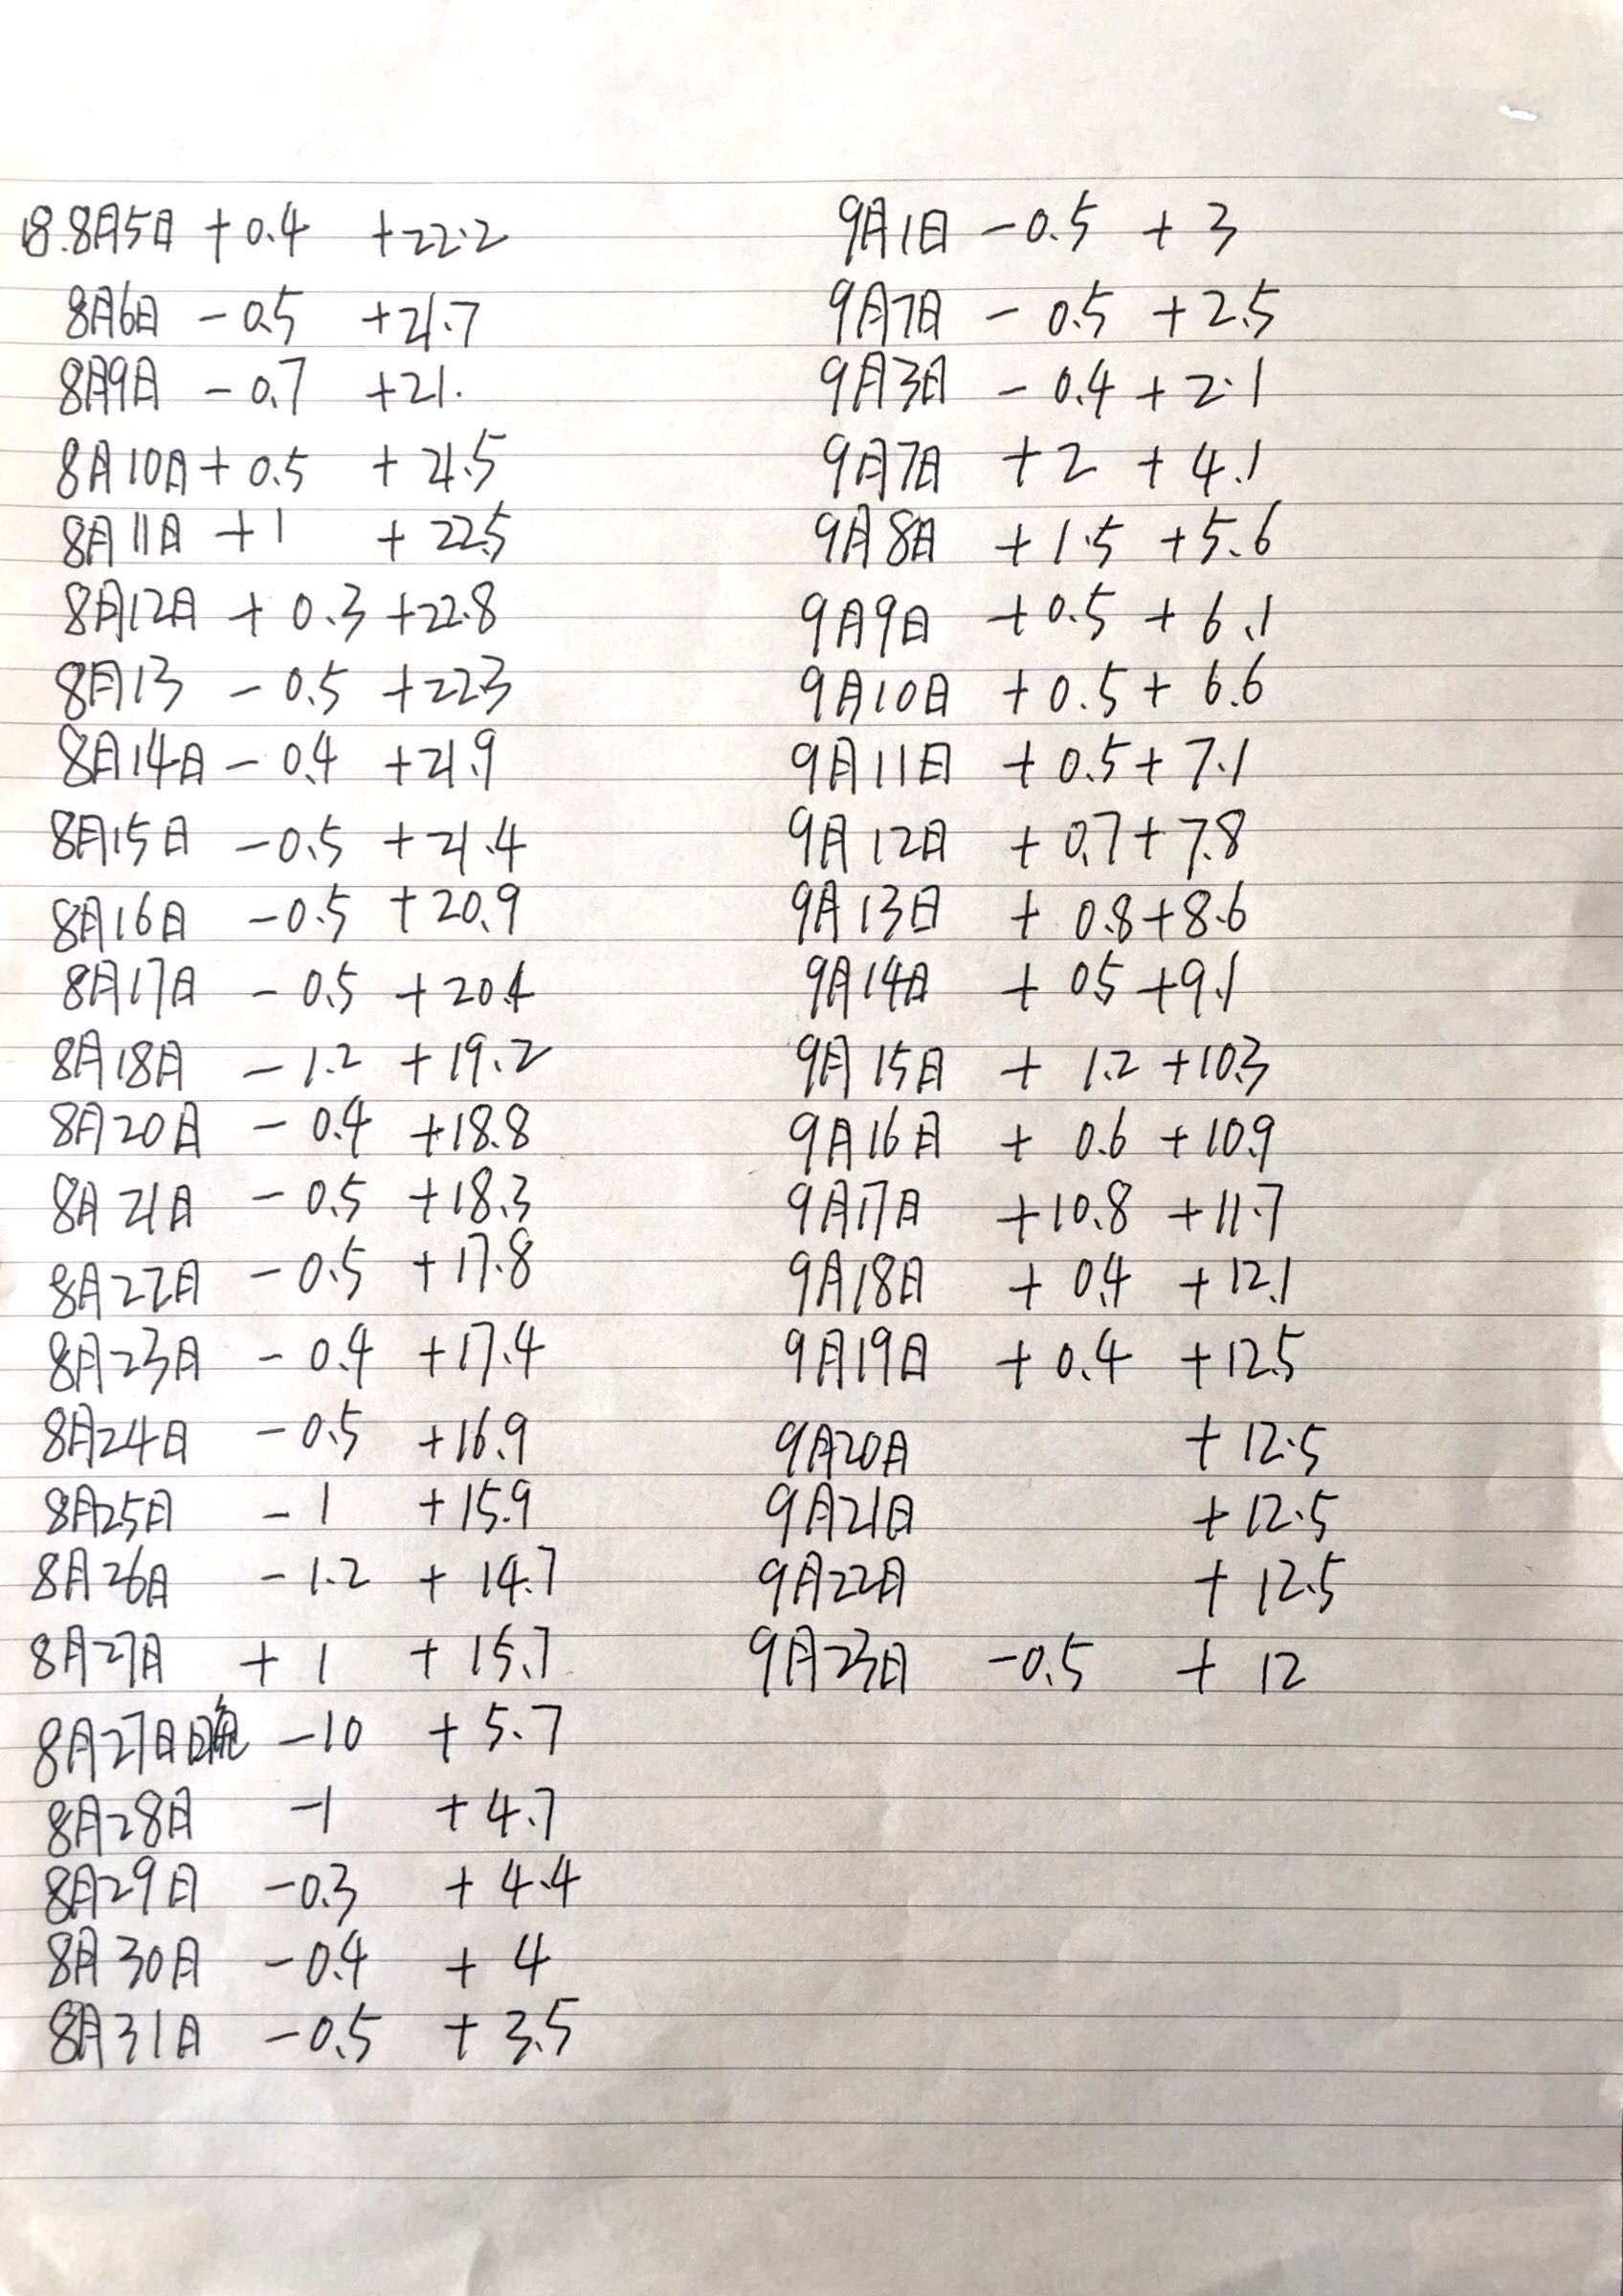 18.8月5日 +0.4 +22.2
8月6日 -0.5 +21.7
8月9日 -0.7 +21.
8月10日 +0.5 +21.5
8月11日 +1 +22.5
8月12日 +0.3 +22.8
8月13 -0.5 +22.3
8月14日 -0.4 +21.9
8月15日 -0.5 +21.4
8月16日 -0.5 +20.9
8月17日 -0.5 +20.4
8月18日 -1.2 +19.2
8月20日 -0.4 +18.8
8月21日 -0.5 +18.3
8月22日 -0.5 +17.8
8月23日 -0.4 +17.4
8月24日 -0.5 +16.9
8月25日 -1 +15.9
8月26日 -1.2 +14.7
8月27日 +1 +15.7
8月27日晚 -10 +5.7
8月28日 -1 +4.7
8月29日 -0.3 +4.4
8月30日 -0.4 +4
8月31日 -0.5 +3.5
9月1日 -0.5 +3
9月7日 -0.5 +2.5
9月3日 -0.4 +2.1
9月7日 +2 +4.1
9月8日 +1.5 +5.6
9月9日 +0.5 +6.1
9月10日 +0.5 +6.6
9月11日 +0.5 +7.1
9月12日 +0.7 +7.8
9月13日 +0.8 +8.6
9月14日 +0.5 +9.1
9月15日 +1.2 +10.3
9月16日 +0.6 +10.9
9月17日 +10.8 +11.7
9月18日 +0.4 +12.1
9月19日 +0.4 +12.5
9月20日 +12.5
9月21日 +12.5
9月22日 +12.5
9月23日 -0.5 +12